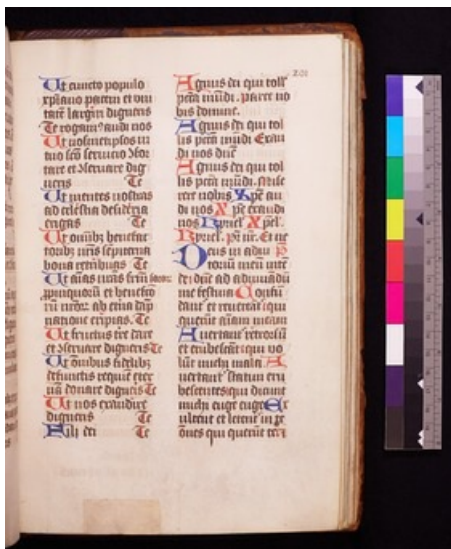 Ut cuncto populo
xpiano pacem et vni
tatē largiri digneris
Te rogam9 audi nos
Ut nosmetipsos in
tuo scō seruicio ɔfor
tare et ɔseruare dig
neris Te
Ut mentes nostras
ad celestia desideria
erigas Te
Ut oīnibꝫ benefac
toribꝫ nr̄is sepiterna
bona retribuas Te
Ut aīas nr̄as
ꝓpinquorū et benefcō
rū nr̄or ab et̄na dāp
natione eripias Te
Ut fructus tr̄e dare
et ɔseruare digneris Te
Ut omibus fidelibꝫ
defunctis requiē eter
nā donare digneris Te
Ut nos exaudire
digneris Te
Fili dei Te
201
Agnus dei qui toll'
pcc̄a mūdi. parce no
bis domine.
Agnus dei qui tol
lis pcc̄a mūdi Exau
di nos dn̄e
Agnus dei qui tol
lis pcc̄a mūdi. Mise
rere nobis Xp̄e au
di nos Xp̄e exaudi
nos Kyriel' Xp̄el'.
Kyriel'. Pr̄ nr̄. Et ne
Deus in adiu
toriū meū intē
de dn̄e ad adiuuādū
me festina Confū
dātur et reuereāt' qui
querūt aīam meam
Auertant' retrorsū
et erubescāt' qui vo
lūt michi mala
Auertant' statim eru
bescentes qui dicunt
michi euge euge Ex
ultent et letent' in te
om̄es qui querūt te